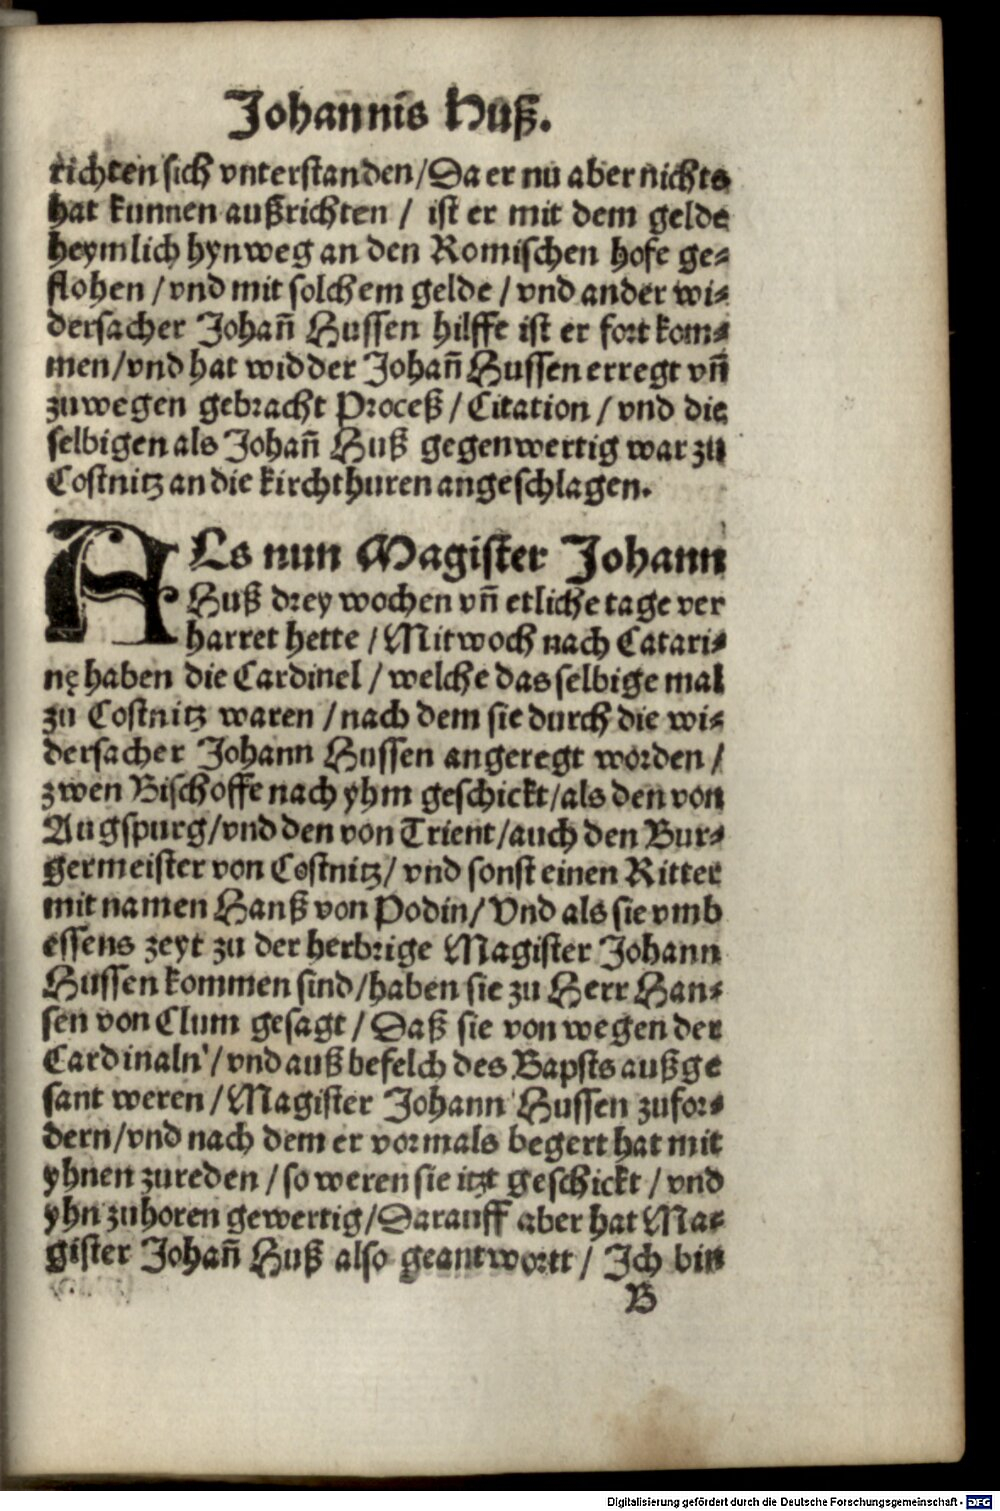 Johannis Huß.
richten sich vnterstanden/Da er nu aber nichts
hat kunnen außrichten / ist er mit dem gelde
heymlich hynweg an den Romischen hofe ge⸗
flohen /vnd mit solchem gelde / vnd ander wi⸗
dersacher Johañ Hussen hilffe ist er fort kom⸗
men/vnd hat widder Johañ Hussen erregt vñ
zuwegen gebracht Proceß / Citation / vnd die
selbigen als Johañ Huß gegenwertig war zu
Costnitz an die kirchthuren angeschlagen.
ALs nun Magister Johann
Huß drey wochen vñ etliche tage ver
harret hette /Mitwoch nach Catari⸗
nę haben die Cardinel / welche das selbige mal
zu Costnitz waren /nach dem sie durch die wi⸗
dersacher Johann Hussen angeregt worden /
zwen Bischoffe nach yhm geschickt/als den von
Augspurg/vnd den von Trient/auch den Bur⸗
germeister von Costnitz/ vnd sonst einen Ritter
mit namen Hanß von Podin/ Vnd als sie vmb
essens zeyt zu der herbrige Magister Johann
Hussen kommen sind/haben sie zu Herr Han⸗
sen von Clum gesagt / Daß sie von wegen der
Cardinaln /vnd auß befelch des Bapsts außge
sant weren /Magister Johann Hussen zufor⸗
dern/vnd nach dem er vormals begert hat mit
yhnen zureden / so weren sie itzt geschickt / vnd
yhn zuhoren gewertig/Darauff aber hat Ma⸗
gister Johañ Huß also geantwortt / Ich bin
B
Digitalisierung gefördert durch die Deutsche Forschungsgemeinschaft - DFG